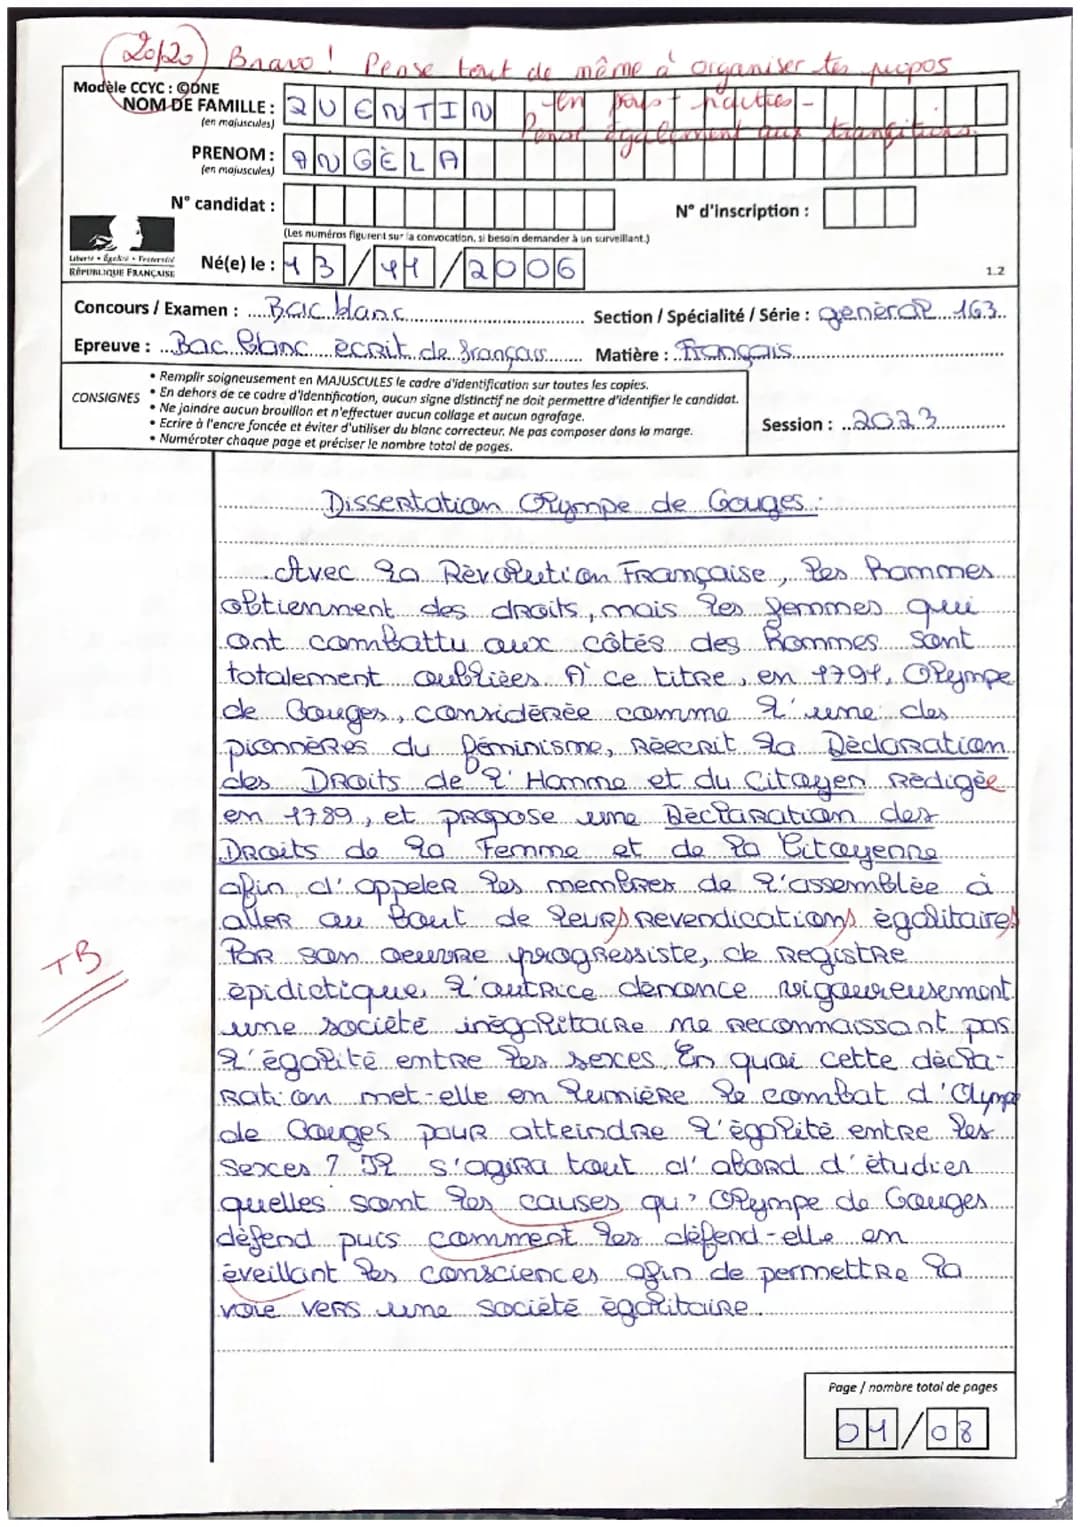 20/20 Bravo ! Pense tout de même à organiser tes propos
- en paragraphes -
Pense également aux transitions.
Modèle CCYC : ©DNE
NOM DE FAMILLE : QUENTIN
(en majuscules)
PRENOM : ANGÈLA
(en majuscules)
N° candidat :
N° d'inscription :
(Les numéros figurent sur la convocation, si besoin demander à un surveillant.)
Liberté • Égalité • Fraternité
RÉPUBLIQUE FRANÇAISE
Né(e) le : 13/11/2006
1.2
Concours / Examen : Bac blanc
Section / Spécialité / Série : général 163
Epreuve : Bac blanc écrit de français
Matière : Français
CONSIGNES
• Remplir soigneusement en MAJUSCULES le cadre d'identification sur toutes les copies.
• En dehors de ce cadre d'identification, aucun signe distinctif ne doit permettre d'identifier le candidat.
• Ne joindre aucun brouillon et n'effectuer aucun collage et aucun agrafage.
• Ecrire à l'encre foncée et éviter d'utiliser du blanc correcteur. Ne pas composer dans la marge.
• Numéroter chaque page et préciser le nombre total de pages.
Session : 2023
Dissertation Olympe de Gouges :
Avec la Révolution Française, les hommes
obtiennent des droits, mais les femmes qui
ont combattu aux côtés des hommes sont
totalement oubliées. A ce titre, en 1791, Olympe
de Gouges, considérée comme l'une des
pionnères du féminisme, réécrit la Déclaration
des Droits de l'Homme et du Citoyen rédigée
en 1789, et propose une Déclaration des
Droits de la Femme et de la Citoyenne
afin d'appeler les membres de l'assemblée à
aller au bout de leurs revendications égalitaires
Par son oeuvre progressiste, de registre
épidictique, l'autrice dénonce vigoureusement
une société inégalitaire ne reconnaissant pas
l'égalité entre les sexces. En quoi cette décla-
ration met-elle en lumière le combat d'Olympe
de Gouges pour atteindre l'égalité entre les
sexces ? Il s'agira tout d'abord d'étudier
quelles sont les causes qu'Olympe de Gouges
défend puis comment les défend-elle en
éveillant les consciences afin de permettre la
voie vers une société égalitaire.
TB
Page / nombre total de pages
01/08